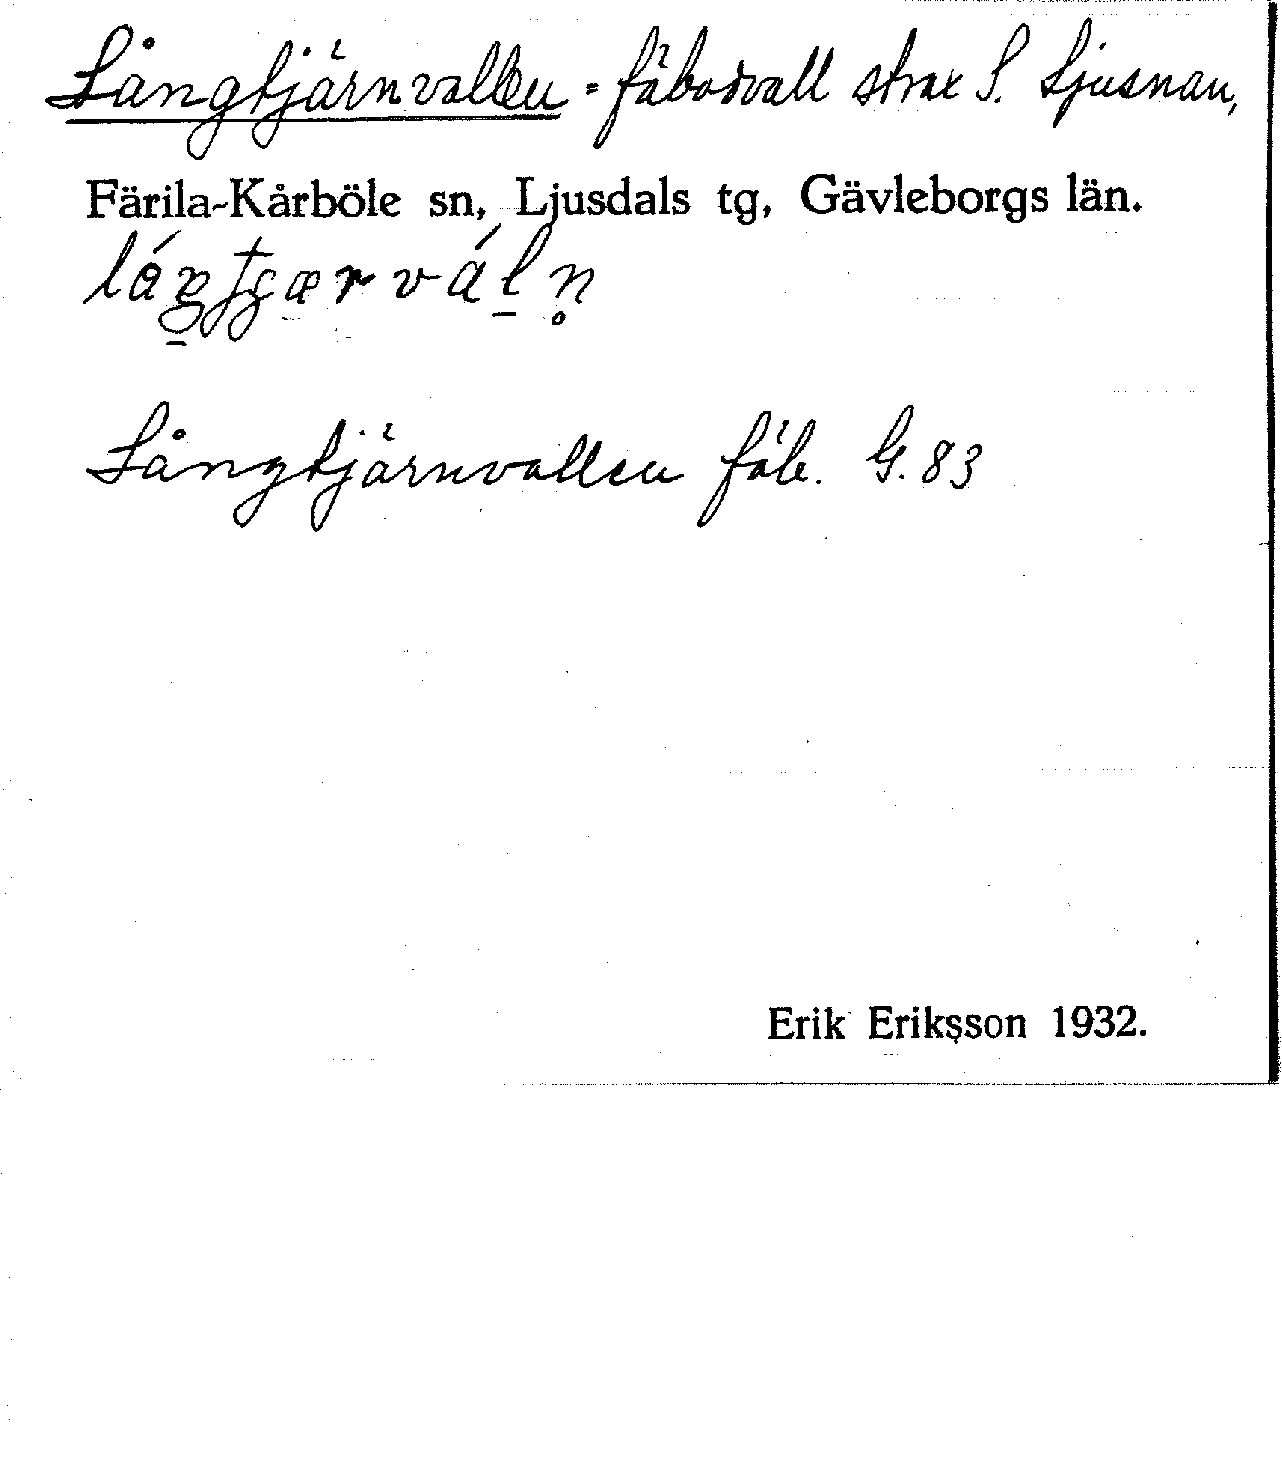 Långtjärnvallen = fäbodvall strax S. Ljusnan,
Färila-Kårböle sn, Ljusdals tg, Gävleborgs län.
Långtjärnvallen fäb. G. 83
Erik Eriksson 1932.